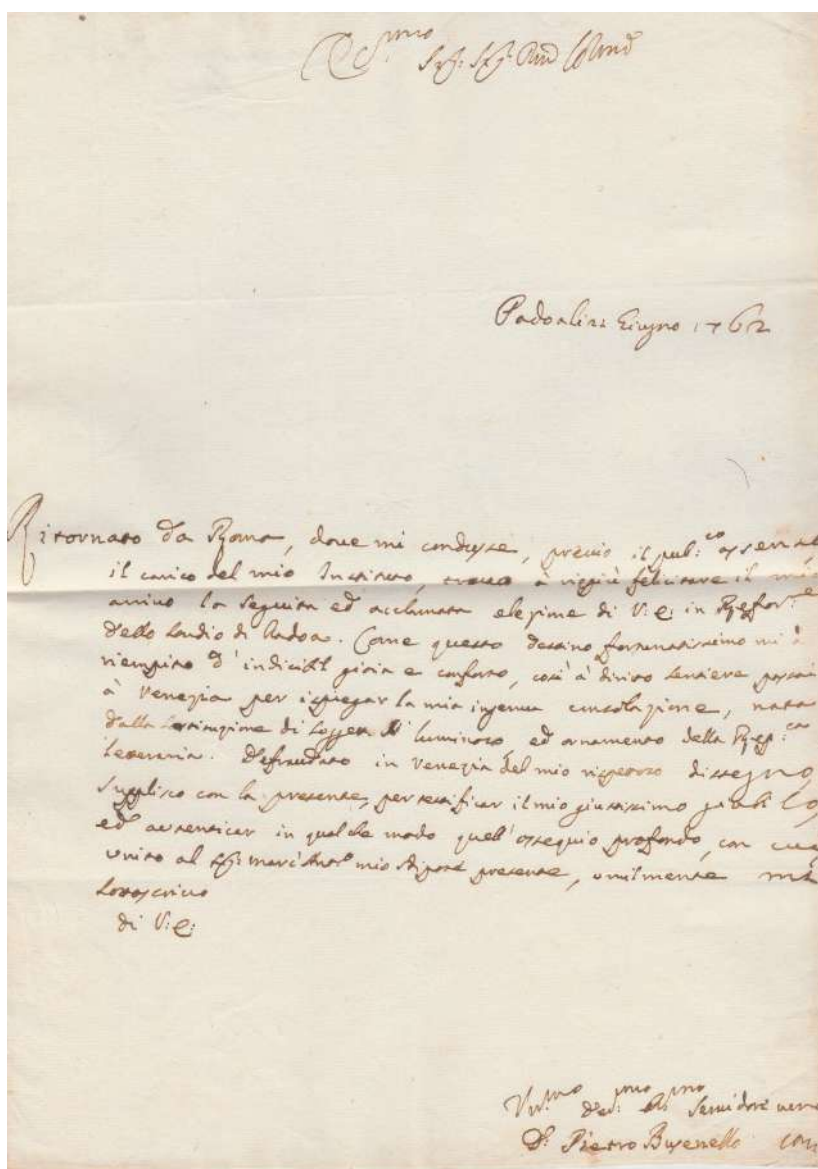 Sig: Sig:
Padoa li 21 Giugno 1762
Ritornato da Roma, dove mi condusse, previo il pub:co assenso
il carico del mio Instituto, trovo à vieppiù felicitare il mio
arrivo la seguita ed acclamata elezione di V: E: in Reffor:e
dello Studio di Padoa. Come questo destino fortunatissimo mi à
riempito d'indicibil gioia e conforto, così à diviso
à Venezia per ispiegar la mia ingenua consolazione, nata
dalla di luminoso, ed ornamento della Rep:ca
Leteraria. Defraudato in Venezia del mio rispetoso dissegno,
supplisco con la presente, per testificar il mio giustissimo giubilo,
ed autenticar in qualche modo quell'ossequio profondo, con cui
unito al mio presente, umilmente mi
sotoscrivo
di V: E:
Um:mo Servidore
D: Pietro Busenello